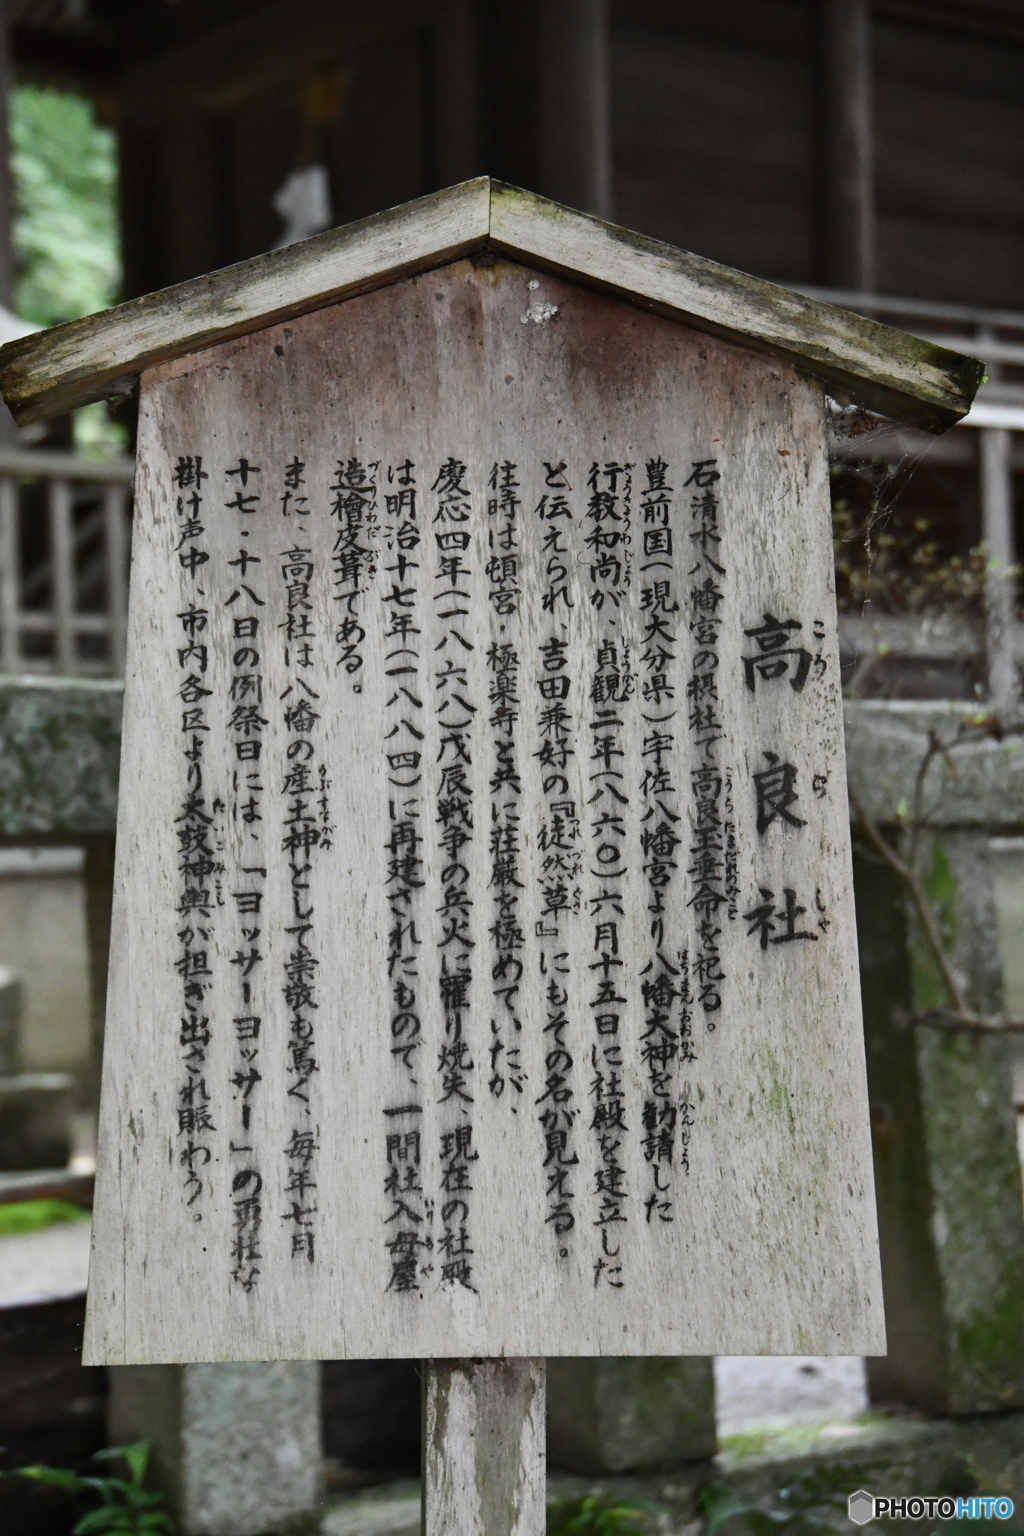 高良社
石清水八幡宮の摂社で高良玉垂命を祀る。
豊前国(現大分県)宇佐八幡宮より八幡大神を勧請した
行教和尚が、貞観二年(八六〇)六月十五日に社殿を建立した
と伝えられ、吉田兼好の『徒然草』にもその名が見える。
往時は頓宮・極楽寺と共に荘厳を極めていたが、
慶応四年(一八六八)戊辰戦争の兵火に罹り焼失、現在の社殿
は明治十七年(一八八四)に再建されたもので、一間社入母屋
造檜皮葺である。
また、高良社は八幡の産土神として崇敬も篤く、毎年七月
十七・十八日の例祭日には、「ヨッサーヨッサー」の勇壮な
掛け声中、市内各区より太鼓神輿が担ぎ出され賑わう。
PHOTOHITO